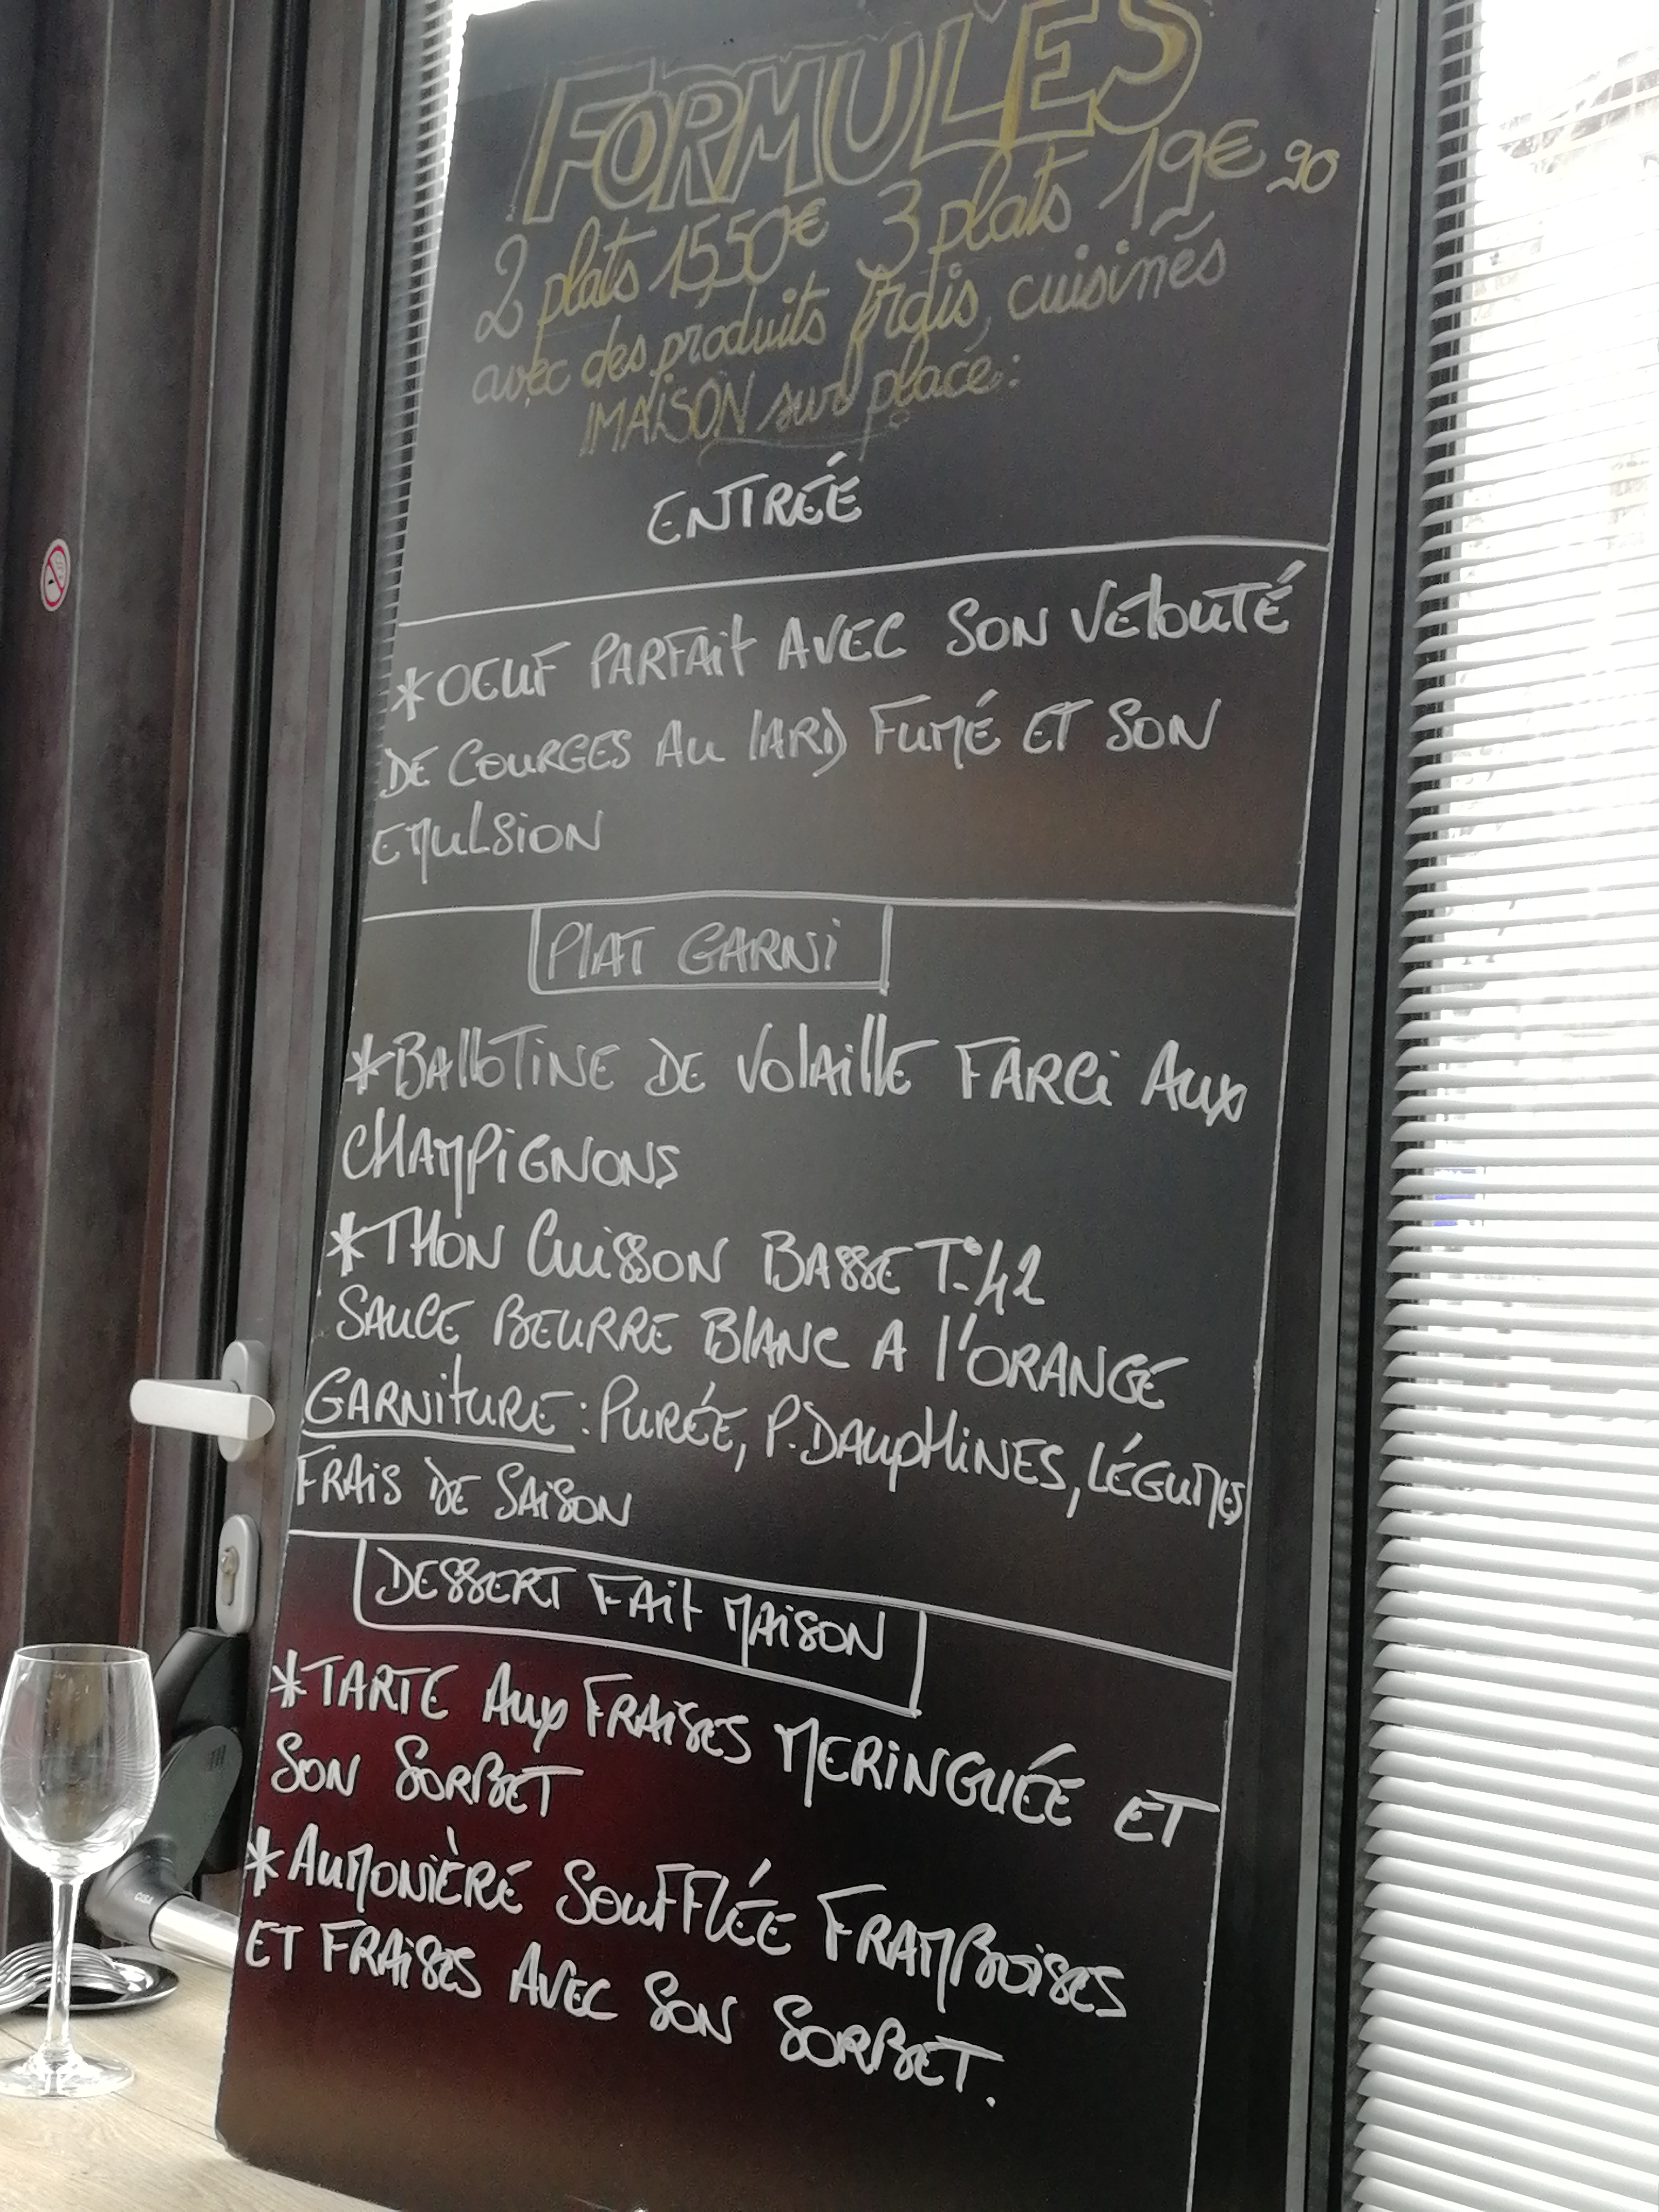 FORMULES
2 plats 15,50€ 3 plats 19€90
avec des produits frais, cuisinés
MAISON sur place:
ENTRÉE
*OEUF PARFAit AVEC SON VEloUTÉ
DE COURGES AU lARD FUMÉ ET SON
EMULSiON
PlAT GARNi
*BAlloTiNE DE VolAillE FARCi AUX
CHAMPiGNONS
*THON CUiSSON BASSE T°42
SAUCE BEURRE BlANC A l'ORANGE
GARNiTURE: PURÉE, P.DAUPHiNES, LÉGUMES
FRAiS DE SAiSON
DESSERT FAit MAiSON
*TARTE AUX FRAiSES MERiNGUÉE ET
SON SORBET
*AUMONiÈRE SOUFFlÉE FRAMBOiSES
ET FRAiSES AVEC SON SORBET.
CISA